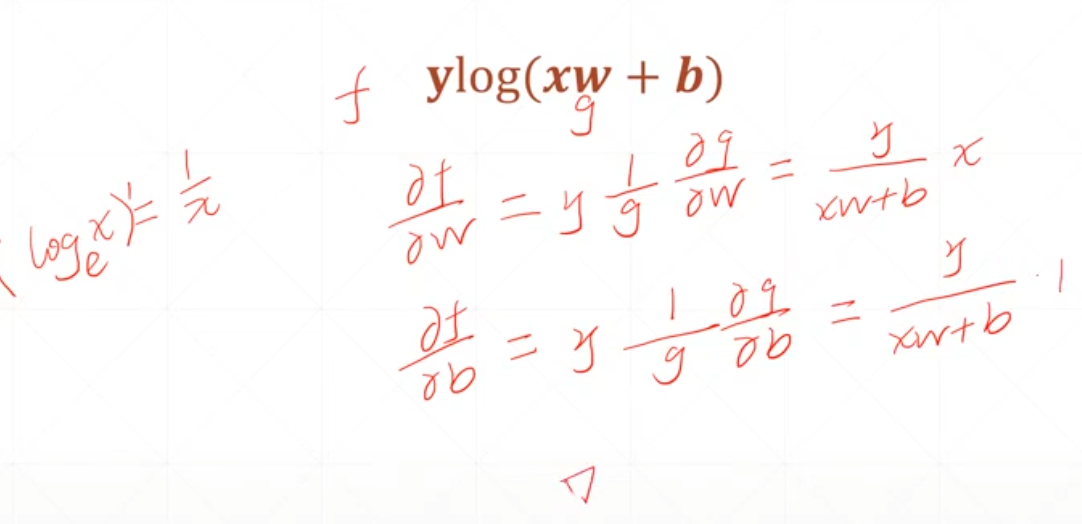 f ylog(xw + b)
g
(log_e x)' = 1/x
∂f/∂w = y 1/g ∂g/∂w = y/(xw+b) x
∂f/∂b = y 1/g ∂g/∂b = y/(xw+b) · 1
∇